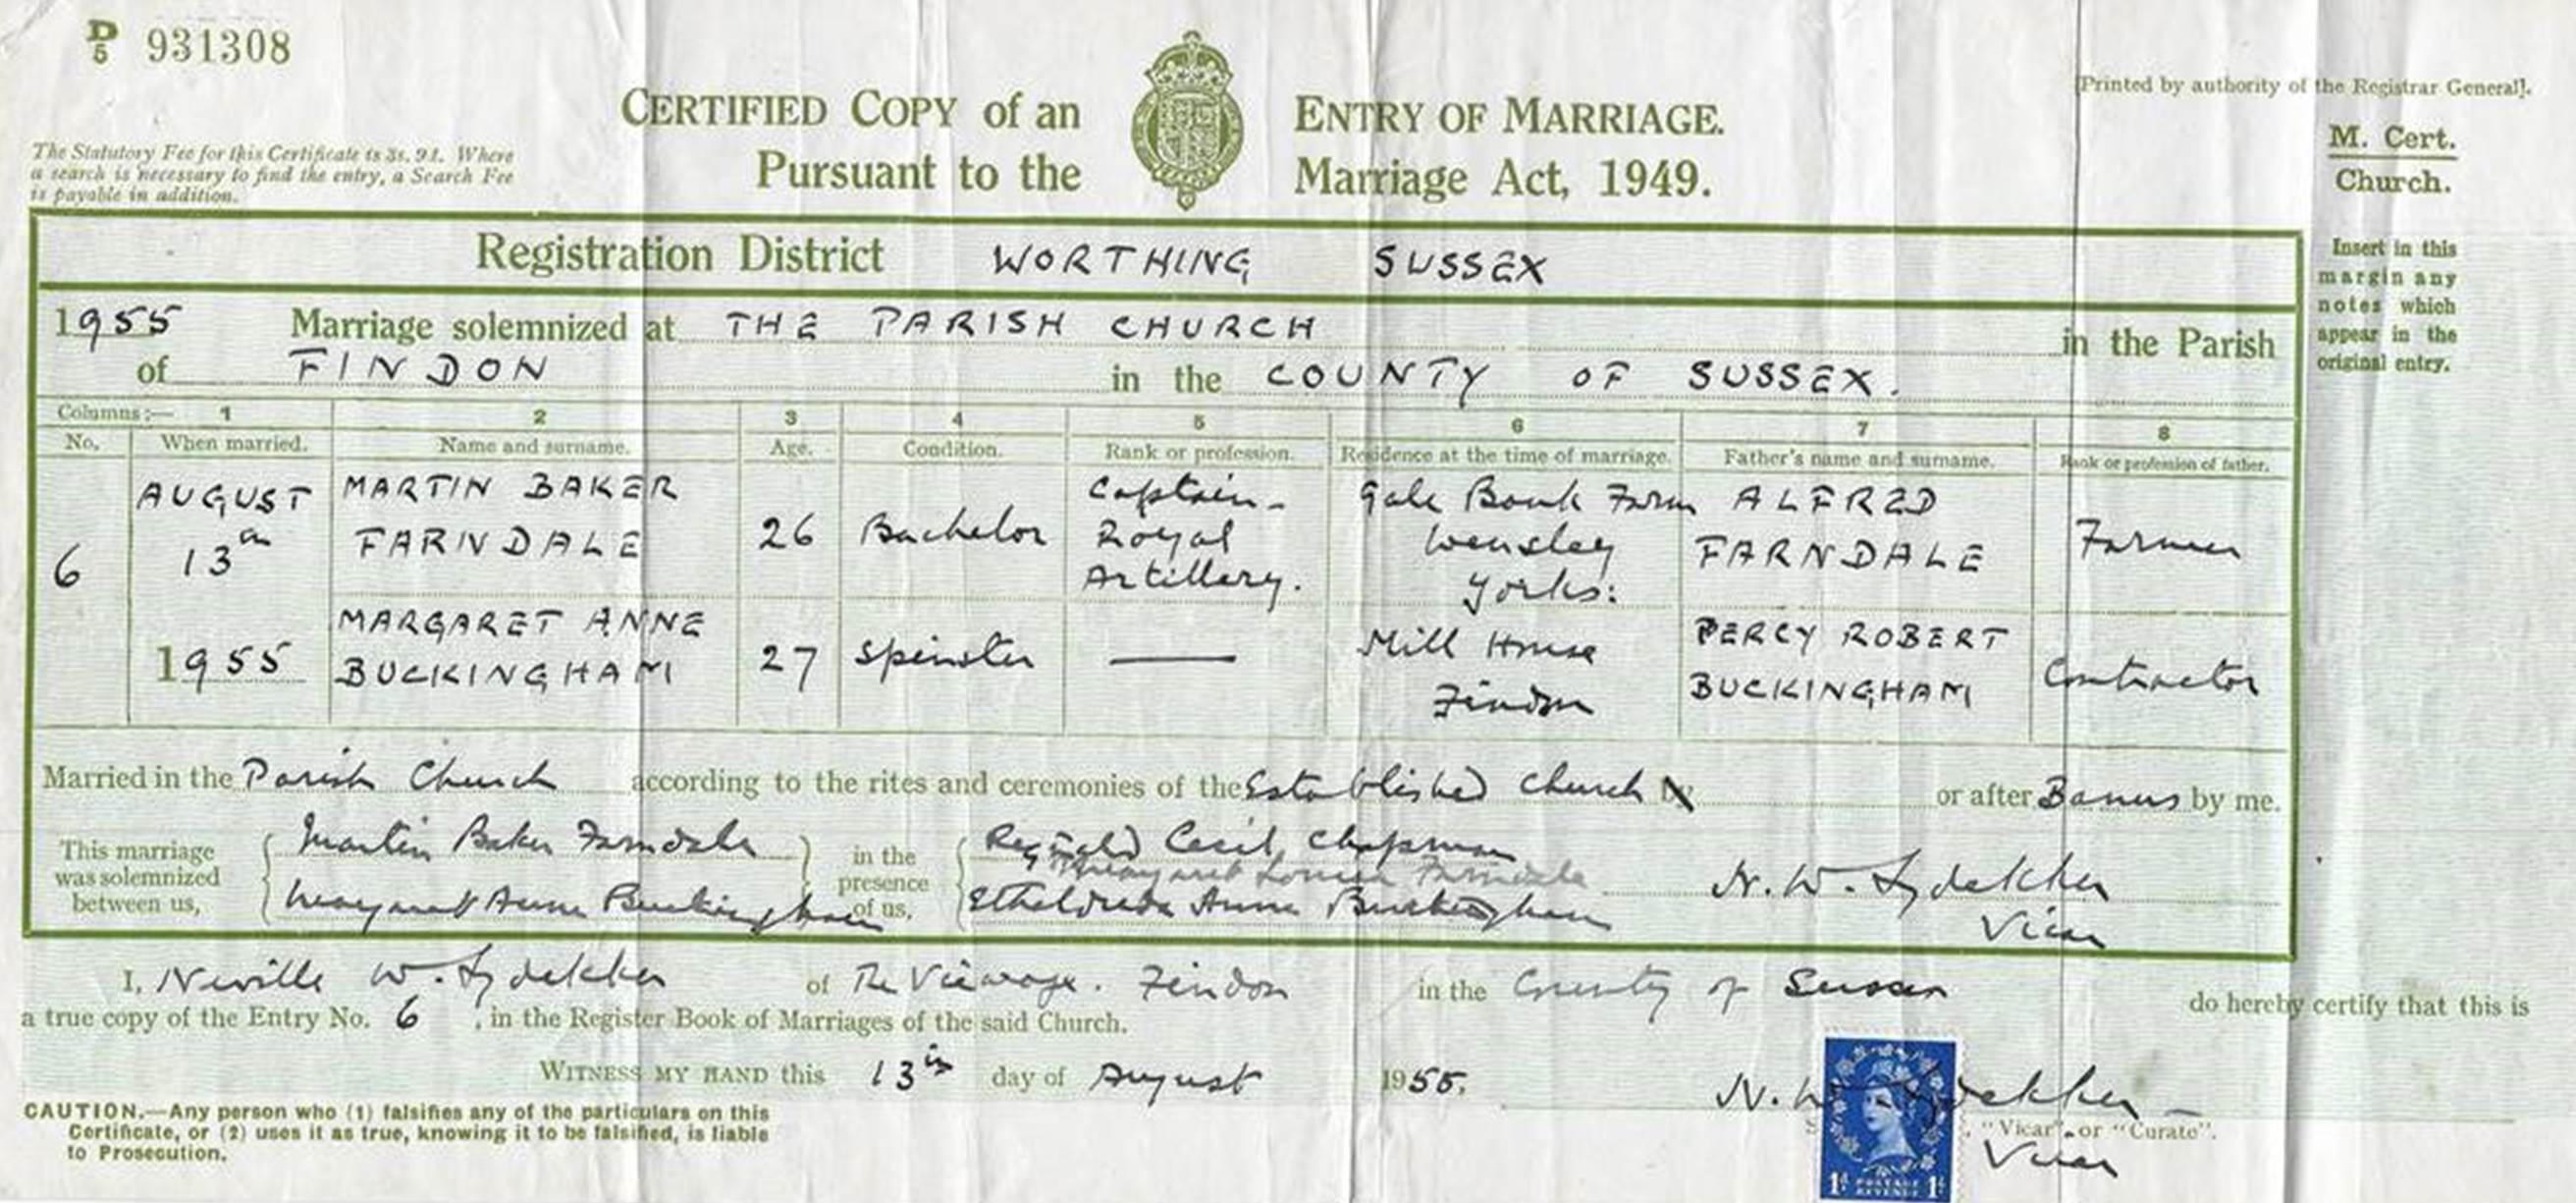 D/5 931308
[Printed by authority of the Registrar General].
CERTIFIED COPY of an ENTRY OF MARRIAGE.
Pursuant to the Marriage Act, 1949.
M. Cert.
Church.
The Statutory Fee for this Certificate is 3s. 9d. Where
a search is necessary to find the entry, a Search Fee
is payable in addition.
Registration District WORTHING SUSSEX
Insert in this
margin any
notes which
appear in the
original entry.
1955 Marriage solemnized at THE PARISH CHURCH in the Parish
of FINDON in the COUNTY OF SUSSEX.
Columns:— 1 2 3 4 5 6 7 8
No. When married. Name and surname. Age. Condition. Rank or profession. Residence at the time of marriage. Father's name and surname. Rank or profession of father.
6
AUGUST
13th
1955
MARTIN BAKER
FARNDALE
26
Bachelor
Captain-
Royal
Artillery.
Gale Bank Farm
Wensley
Yorks:
ALFRED
FARNDALE
Farmer
MARGARET ANNE
BUCKINGHAM
27
Spinster
Mill House
Findon
PERCY ROBERT
BUCKINGHAM
Contractor
Married in the Parish Church according to the rites and ceremonies of the Established Church by or after Banns by me.
This marriage
was solemnized
between us,
Martin Baker Farndale
Margaret Anne Buckingham
in the
presence
of us,
Reginald Cecil Chapman
Margaret Louisa Farndale
Etheldreda Anne Buckingham
N. W. Lydekker
Vicar
I, Neville W. Lydekker of The Vicarage. Findon in the County of Sussex do hereby certify that this is
a true copy of the Entry No. 6, in the Register Book of Marriages of the said Church.
WITNESS MY HAND this 13th day of August 1955.
N. W. Lydekker
"Vicar" or "Curate".
Vicar
1d POSTAGE REVENUE 1d
CAUTION.—Any person who (1) falsifies any of the particulars on this
Certificate, or (2) uses it as true, knowing it to be falsified, is liable
to Prosecution.